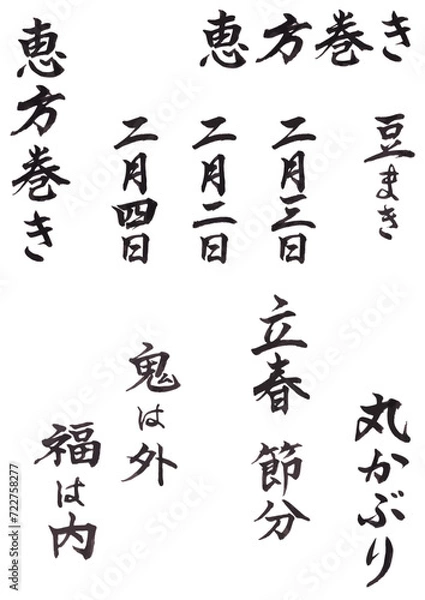 恵方巻き
豆まき
二月三日
二月二日
二月四日
恵方巻き
立春
節分
丸かぶり
鬼は外
福は内
Adobe Stock | #722758277